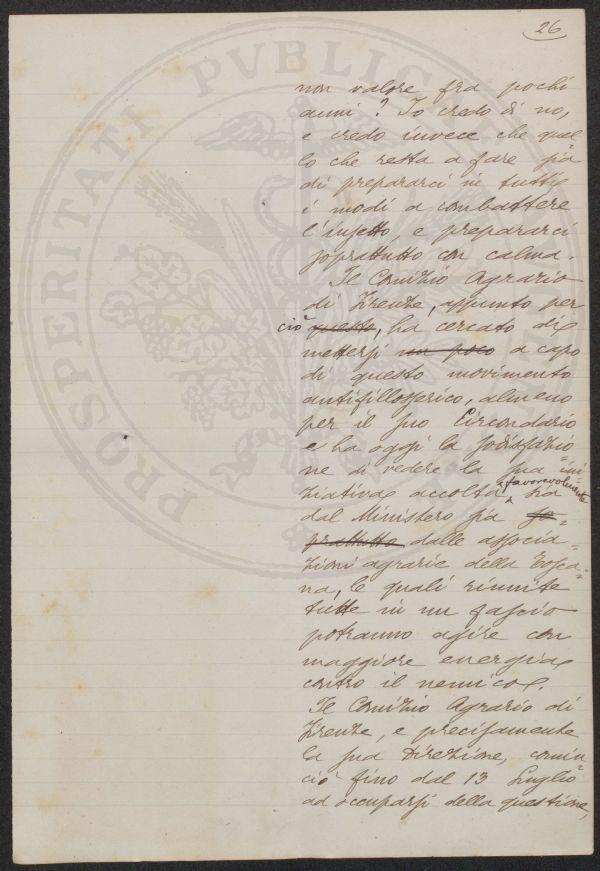 26
non valore fra pochi
anni? Io credo di no,
e credo invece che quel=
lo che resta a fare sia
di prepararci in tutti
i modi a combattere
l'insetto, e prepararci
soprattutto con calma.
Il Comizio Agrario
di Firenze, appunto per
ciò questo, ha cercato di
mettersi un poco a capo
di questo movimento
antifillosserico, almeno
per il suo Circondario
e ha oggi la sodisfazio=
ne di vedere la sua ini=
ziativa accolta favorevolmente sia
dal Ministero sia so=
prattutto dalle associa=
zioni agrarie della Tosca=
na, le quali riunite
tutte in un fascio
potranno agire con
maggiore energia
contro il nemico.
Il Comizio Agrario di
Firenze, e precisamente
la sua Direzione, comin=
ciò fino dal 13 Luglio
ad occuparsi della questione,
PROSPERITATI PVBLIC